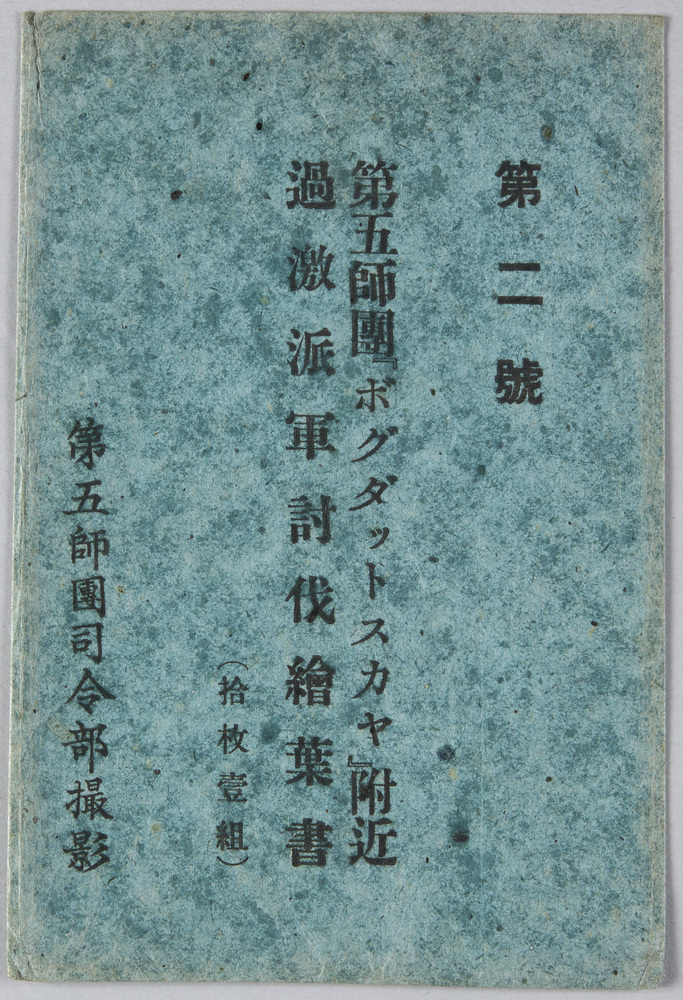 第二號
第五師團『ボグダットスカヤ』附近
過激派軍討伐繪葉書
（拾枚壹組）
第五師團司令部撮影